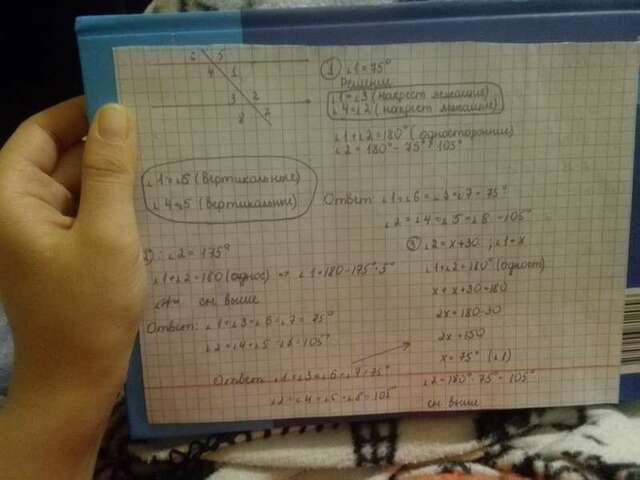 6 5
4 1
3 2
8 7
① ∠1=75°
Решение
∠1=∠3 (накрест лежащие)
∠4=∠2 (накрест лежащие)
∠1+∠2=180° (односторонние)
∠2=180°-75°=105°
∠1=∠6 (Вертикальные)
∠4=∠5 (вертикальные)
Ответ: ∠1=∠6=∠3=∠7=75°
∠2=∠4=∠5=∠8=105°
∠2=175°
∠1+∠2=180 (однос) => ∠1=180-175=5°
см выше
Ответ: ∠1=∠3=∠6=∠7=75°
∠2=∠4=∠5=∠8=105°
③ ∠2=x+30; ∠1=x
∠1+∠2=180° (одност)
x+x+30=180
2x=180-30
2x=150
x=75° (∠1)
∠2=180°-75°=105°
см выше
Ответ: ∠1=∠3=∠6=∠7=75°
∠2=∠4=∠5=∠8=105